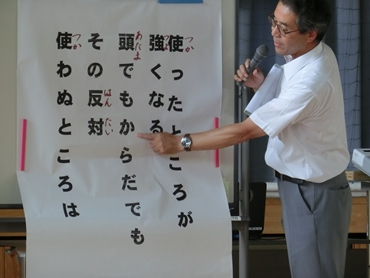 使ったところが
強くなる
頭でもからだでも
その反対
使わぬところは
つか
あたま
はん たい
つか